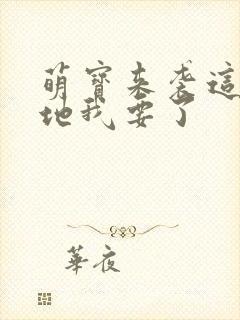 萌寶來襲這
地我要了
華夜